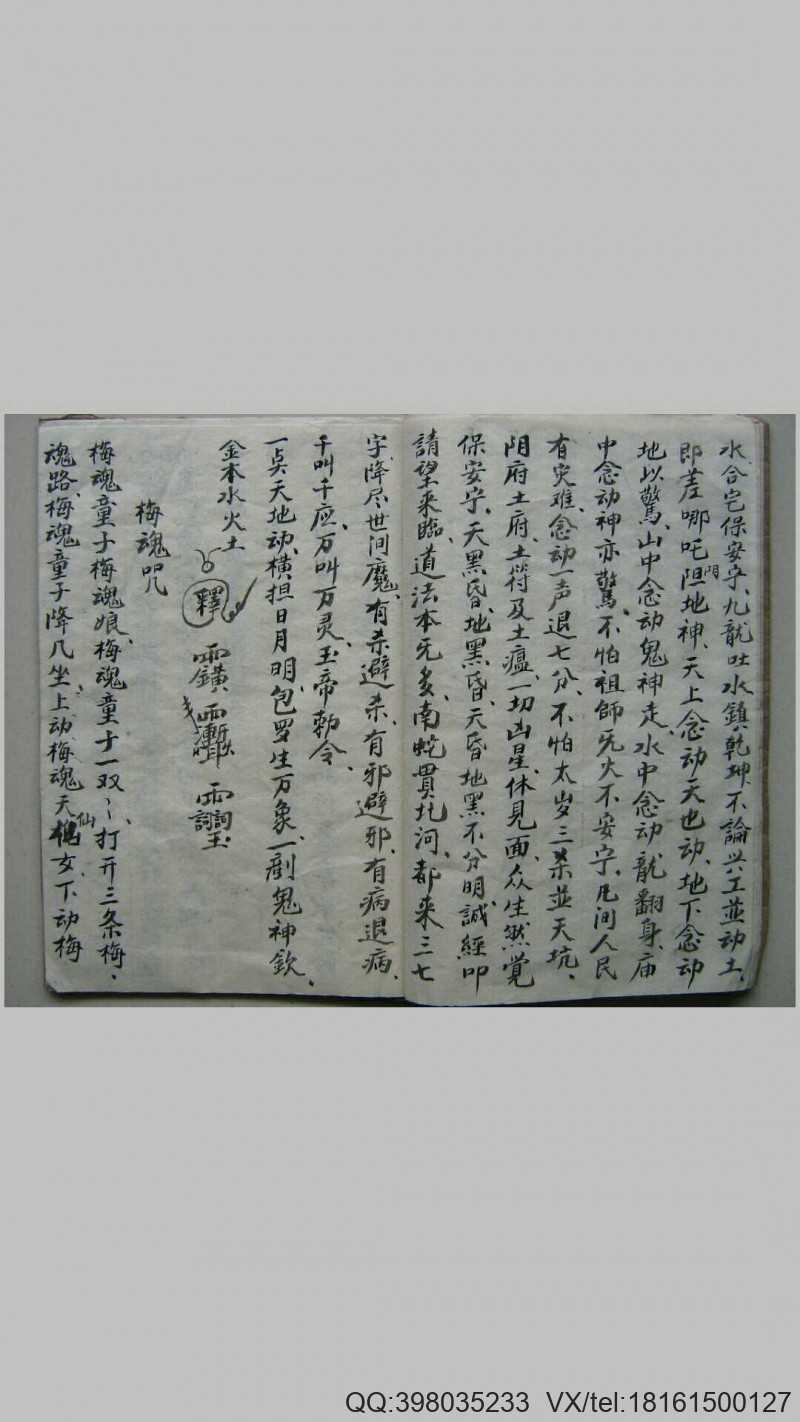 水合宅保安寜、九龍吐水鎮乾坤、不論兴工並动土、
即差哪吒門阻地神、天上念动天也动、地下念动
地以驚、山中念动鬼神走、水中念动龍翻身、庙
中念动神亦驚、不怕祖師旡火不安宁、凡间人民
有灾难、念动一声退七分、不怕太岁三杀並天坑、
阴府土府、土符及土瘟、一切凶星、休見面、众生然覚
保安宁、天黑昏、地黑昏、天昏地黑不分明、誠經叩
請望来臨、道法本旡多、南蛇貫北河、都来三七
字、降尽世间魔、有杀避杀、有邪避邪、有病退病、
千叫千应、万叫万灵、玉帝勅令、
一点天地动、横担日月明、包罗生万象、一剮鬼神欽、
金木水火土
釋
梅魂咒
梅魂童子梅魂娘、梅魂童子一双々、打开三条梅、
魂路、梅魂童子降几坐、上动梅魂天仙女、下动梅
QQ:398035233 VX/tel:18161500127